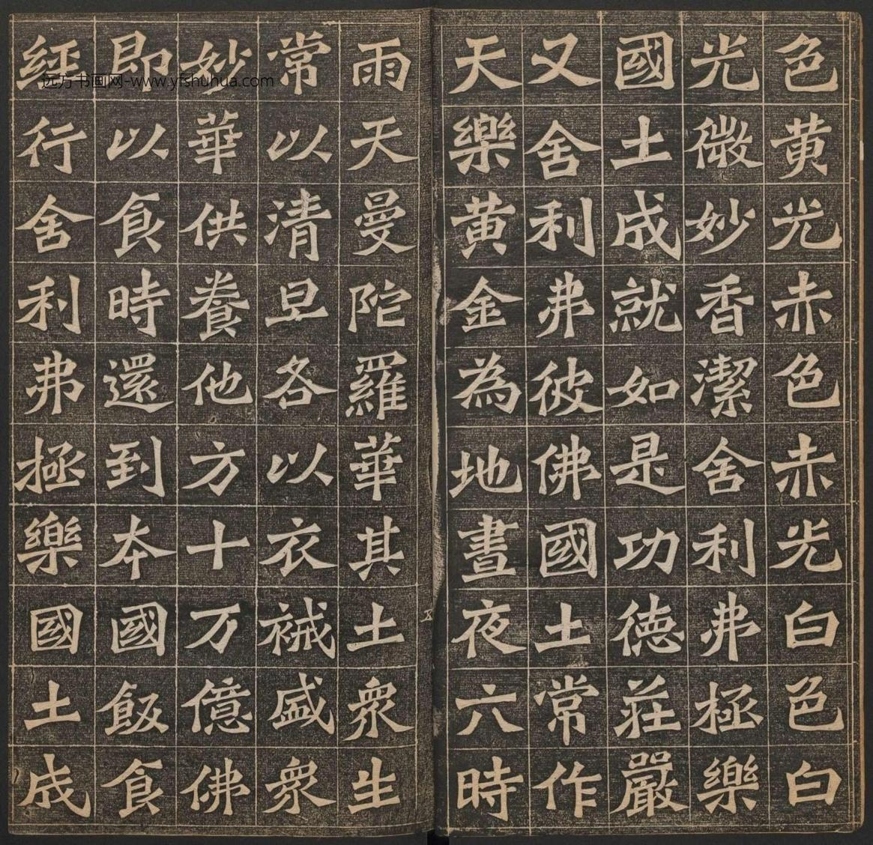 色黄光赤色赤光白色白
光微妙香潔舍利弗極樂
國土成就如是功德莊嚴
又舍利弗彼佛國土常作
天樂黄金為地晝夜六時
雨天曼陀羅華其土衆生
常以清旦各以衣裓盛衆
妙華供養他方十万億佛
即以食時還到本國飯食
經行舍利弗極樂國土成
远方书画网-www.yfshuhua.com